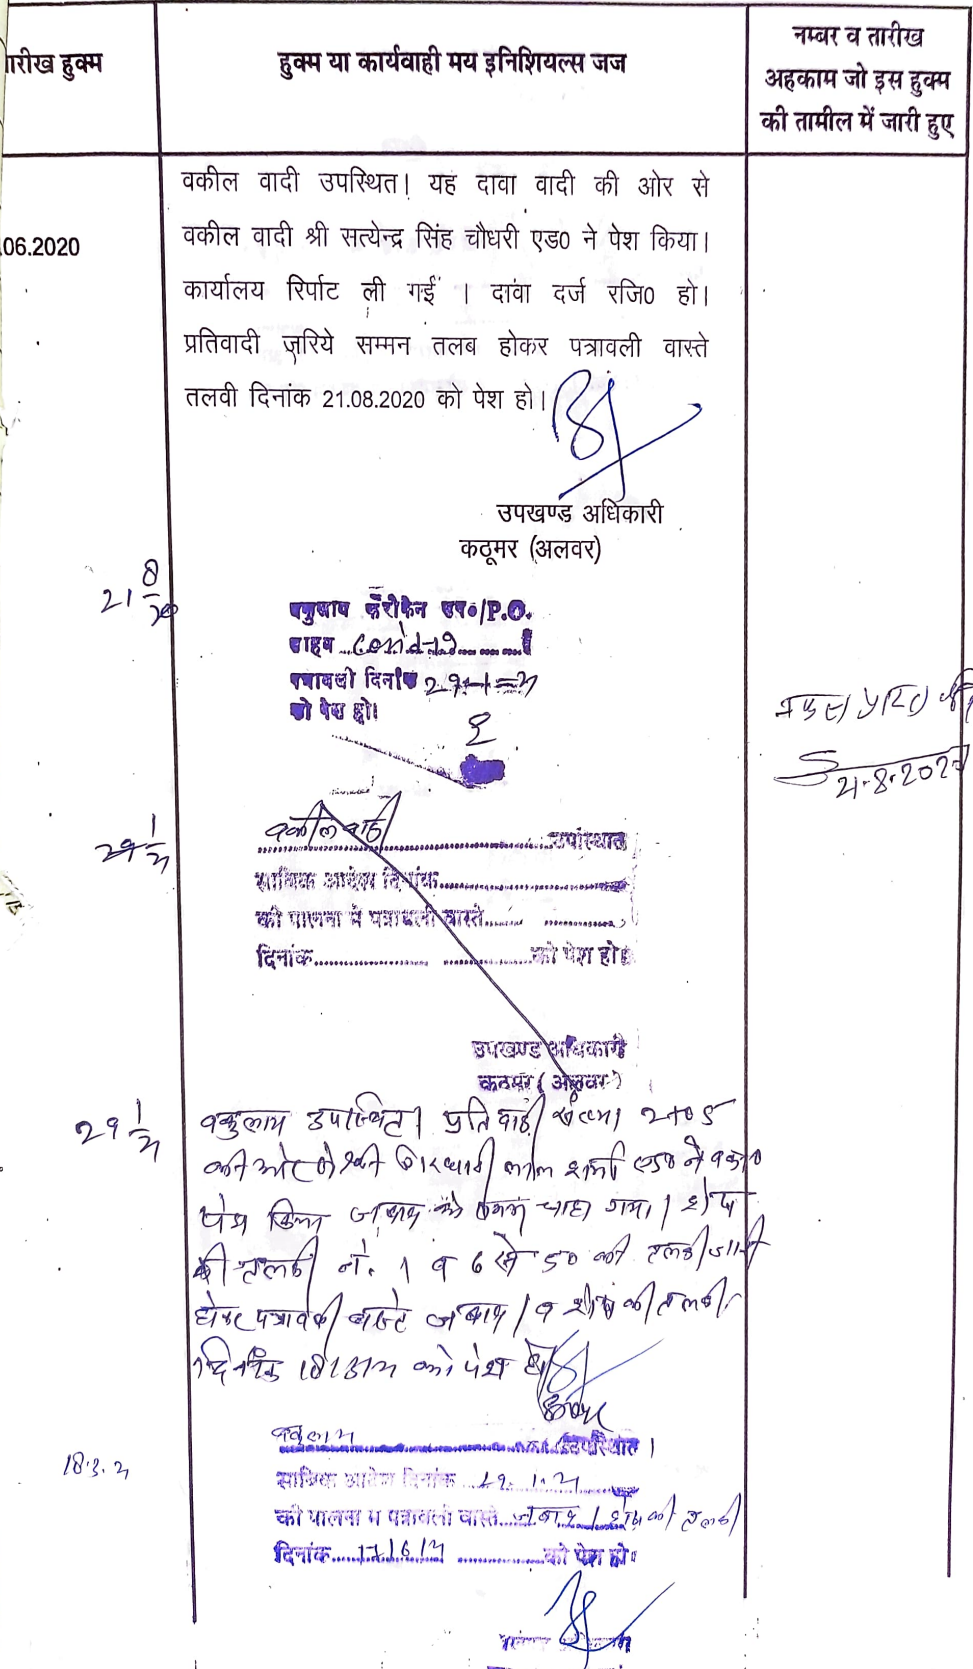 तारीख हुक्म
हुक्म या कार्यवाही मय इनिशियल्स जज
नम्बर व तारीख
अहकाम जो इस हुक्म
की तामील में जारी हुए
.06.2020
वकील वादी उपस्थित। यह दावा वादी की ओर से
वकील वादी श्री सत्येन्द्र सिंह चौधरी एड0 ने पेश किया।
कार्यालय रिर्पाट ली गई । दावा दर्ज रजि0 हो।
प्रतिवादी जरिये सम्मन तलब होकर पत्रावली वास्ते
तलवी दिनांक 21.08.2020 को पेश हो।
उपखण्ड अधिकारी
कठूमर (अलवर)
21 8/20
P.O.
साहब Covid-19
पत्रावली दिनांक 29-1-21
को पेश हो।
21.8.202
29 1/21
वकील वादी उपस्थित
साबिक आदेश दिनांक
की पालना मे पत्रावली वास्ते
दिनांक को पेश हो।
उपखण्ड अधिकारी
कठूमर (अलवर)
29 1/21
वकुलाय उपस्थित। प्रतिवादी संख्या 2 से 5
की ओर से श्री गिरधारी लाल शर्मा एड0 ने
पेश किया जवाब को समय चाहा गया। शेष
की तलबी नं. 1 व 6 से 50 की तलबी जारी
होकर पत्रावली वास्ते जवाब / व शेष की तलबी
दिनांक 18/3/21 को पेश हो
18.3.21
वकुलाय उपस्थित।
साबिक आदेश दिनांक 29.1.21
की पालना म पत्रावली वास्ते जवाब / शेष की तलबी
दिनांक 17/6/21 को पेश हो।